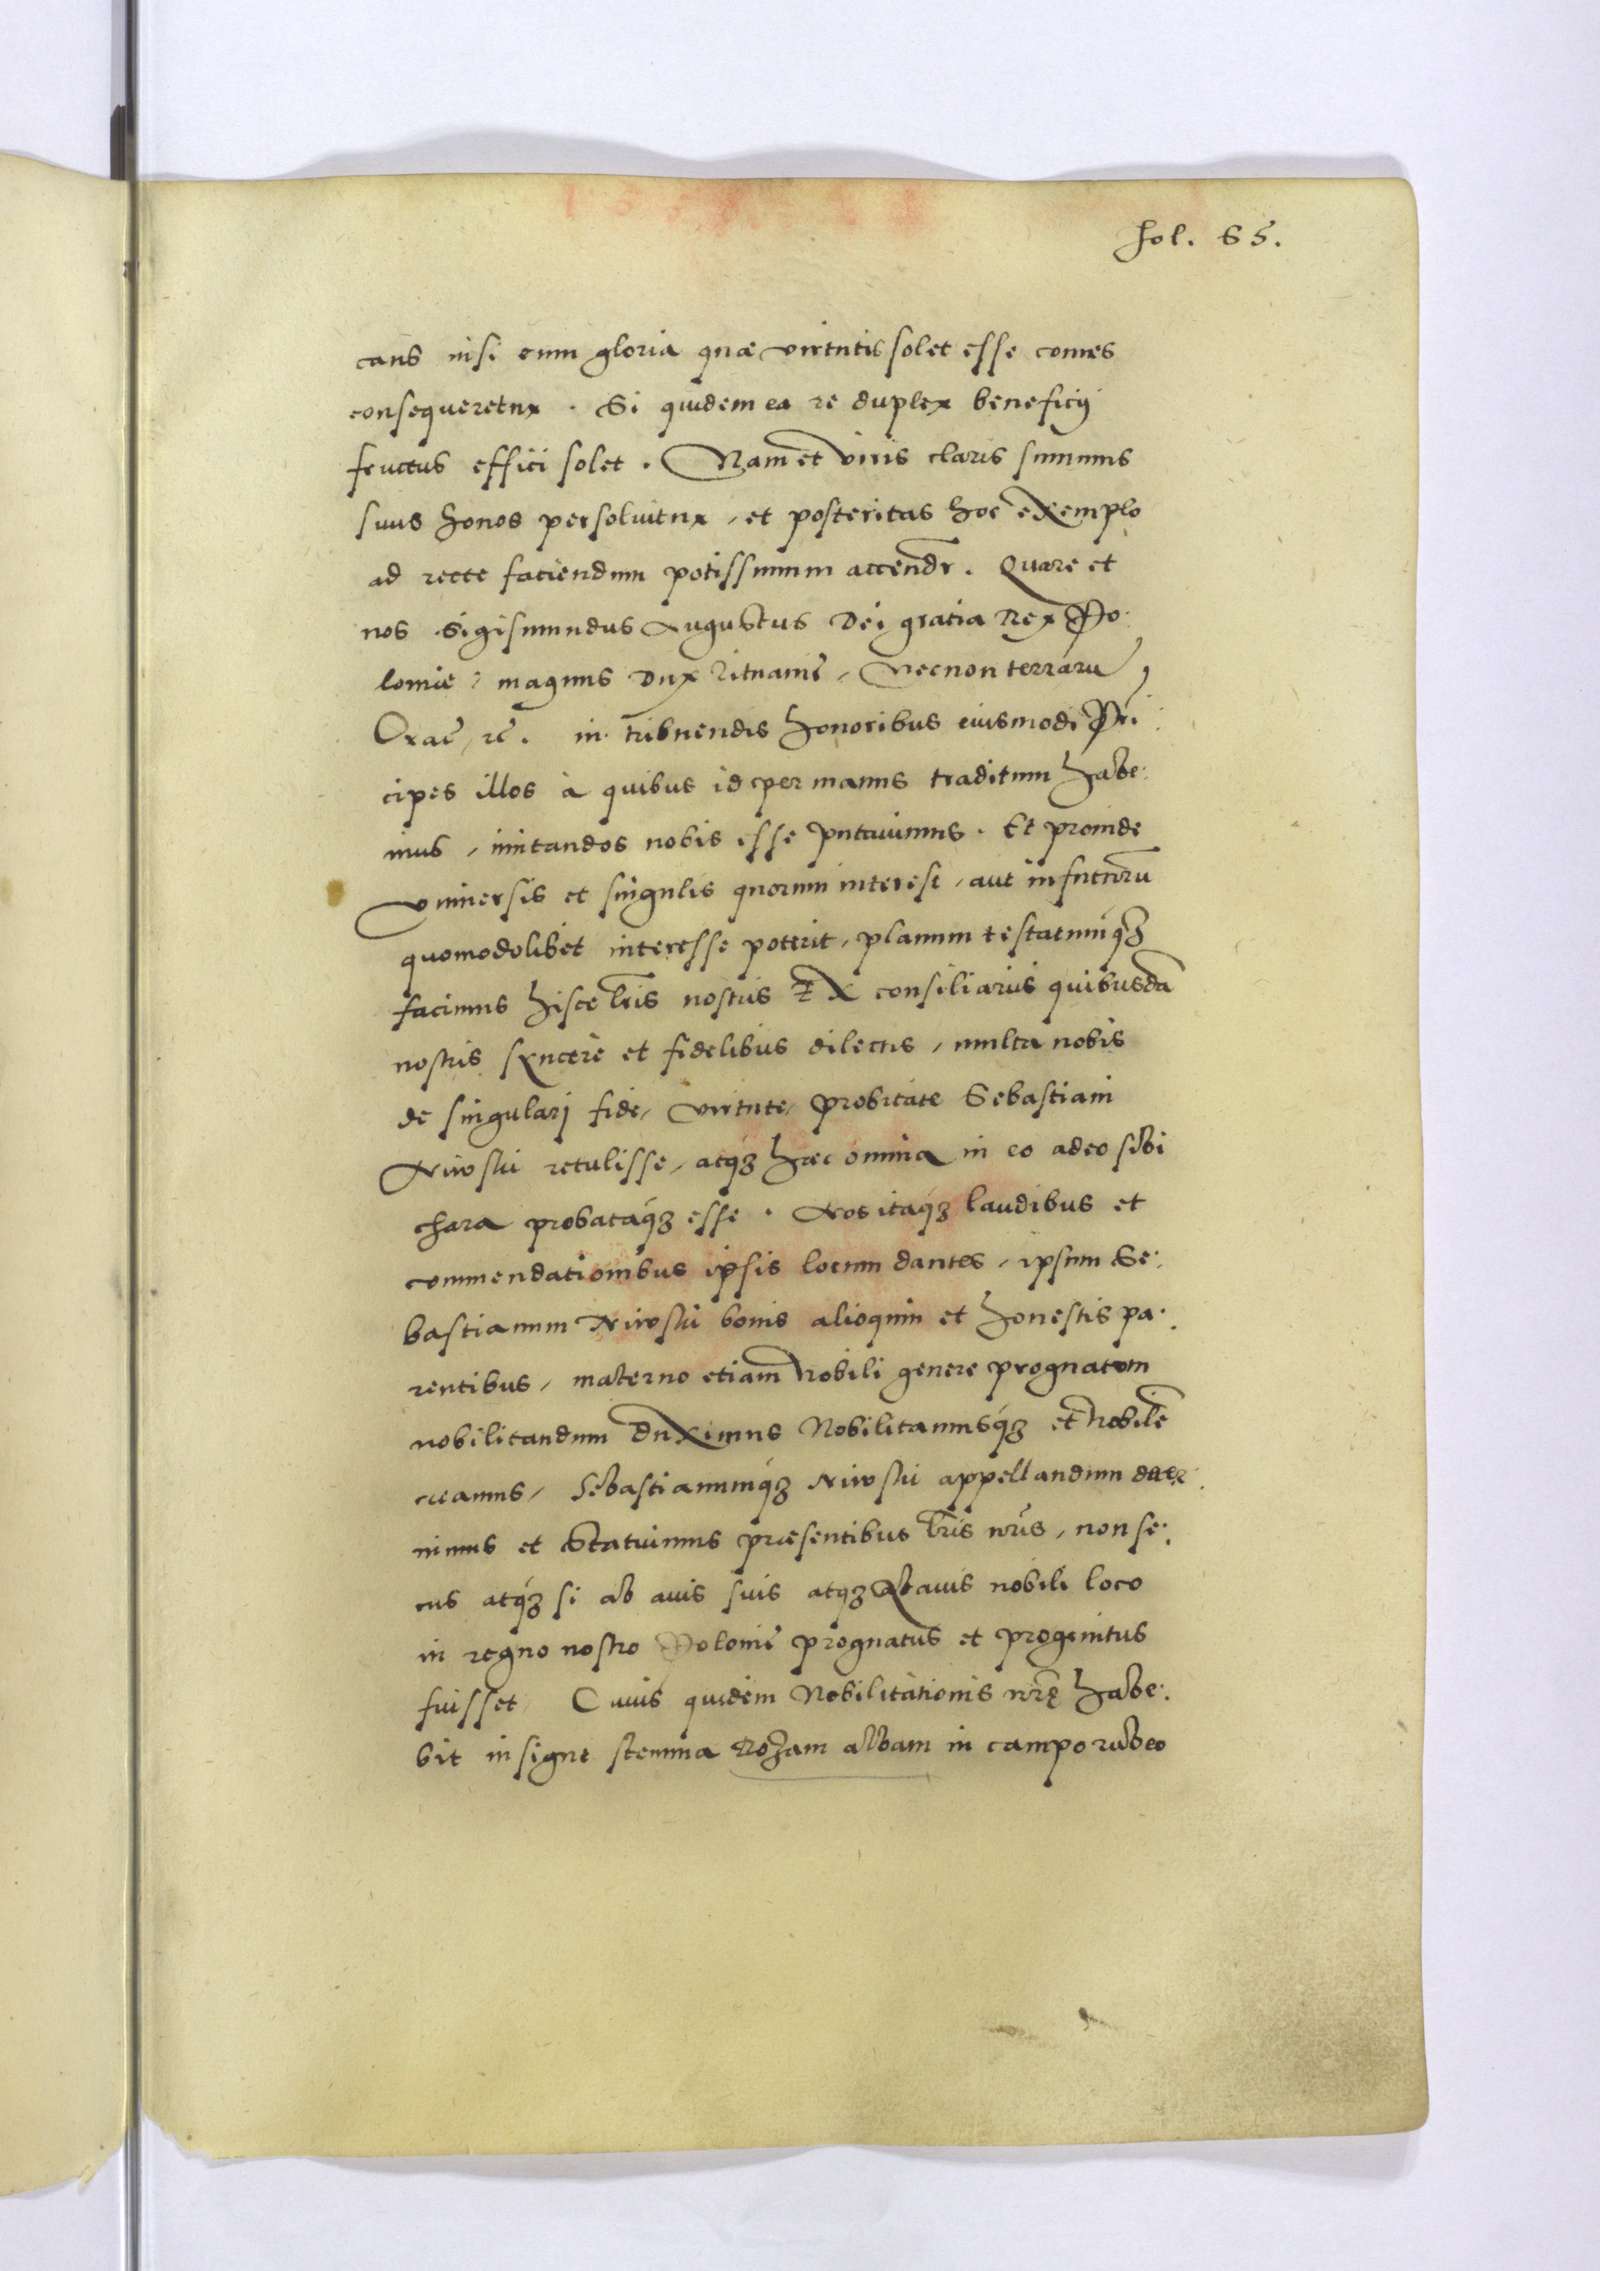 fol. 65.
cans nisi eum gloria quæ virtutis solet esse comes
consequeretur. Si quidem ea re duplex beneficij
fructus effici solet. Nam et viris claris summus
suus honos persolvitur, et posteritas hoc exemplo
ad recte faciendum potissimum accendr. Quare et
nos Sigismundus Augustus Dei gratia Rex Po:
lonie, magnus Dux Lituanie, Necnon terraru,
Orae, rc. in tribuendis honoribus eiusmodi Pri:
cipes illos à quibus id per manus traditum habe:
mus, imitandos nobis esse putavimus. Et proinde
Vniversis et singulis quorum interest, aut in futurum
quomodolibet interesse poterit, planum testatumq́ꝫ
facimus hisce lris nostris Ex consiliarijs quibusdā
nostris syncere et fidelibus dilectis, multa nobis
de singulari fide, virtute, probitate Sebastiani
retulisse, atqꝫ hæc omnia in eo adeo sibi
chara probataq́ꝫ esse. Nos itaq́ꝫ laudibus et
commendationibus ipsis locum dantes, ipsum Se:
bastianum bonis alioquin et honestis pa:
rentibus, materno etiam Nobili genere prognatum
nobilitandum Duximus Nobilitamusq́ꝫ et Nobilē
creamus, Sebastianumq́ꝫ appellandum decer
nimus et Statuimus præsentibus lris nris, non se:
cus atq́ꝫ si ab avis suis atqꝫ Abavis nobili loco
in regno nostro Polonie prognatus et progenitus
fuisset, Cuius quidem Nobilitationis nrę habe:
bit insigne stemma Rozam albam in campo rubeo